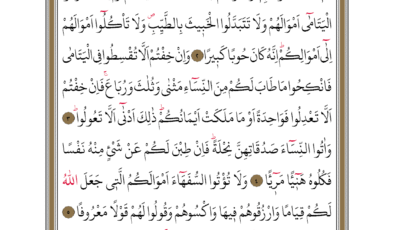 الْيَتَامٰٓى اَمْوَالَهُمْ وَلَا تَتَبَدَّلُوا الْخَب۪يثَ بِالطَّيِّبِۖ وَلَا تَأْكُلُٓوا اَمْوَالَهُمْ
اِلٰٓى اَمْوَالِكُمْۜ اِنَّهُ كَانَ حُوبًا كَب۪يرًا ٢ وَاِنْ خِفْتُمْ اَلَّا تُقْسِطُوا فِي الْيَتَامٰى
فَانْكِحُوا مَا طَابَ لَكُمْ مِنَ النِّسَٓاءِ مَثْنٰى وَثُلٰثَ وَرُبَاعَۚ فَاِنْ خِفْتُمْ
اَلَّا تَعْدِلُوا فَوَاحِدَةً اَوْ مَا مَلَكَتْ اَيْمَانُكُمْۜ ذٰلِكَ اَدْنٰٓى اَلَّا تَعُولُواۜ ٣
وَاٰتُوا النِّسَٓاءَ صَدُقَاتِهِنَّ نِحْلَةًۜ فَاِنْ طِبْنَ لَكُمْ عَنْ شَيْءٍ مِنْهُ نَفْسًا
فَكُلُوهُ هَن۪ٓيـًٔا مَر۪ٓيـًٔا ٤ وَلَا تُؤْتُوا السُّفَهَٓاءَ اَمْوَالَكُمُ الَّت۪ي جَعَلَ اللّٰهُ
لَكُمْ قِيَامًا وَارْزُقُوهُمْ ف۪يهَا وَاكْسُوهُمْ وَقُولُوا لَهُمْ قَوْلًا مَعْرُوفًا ٥